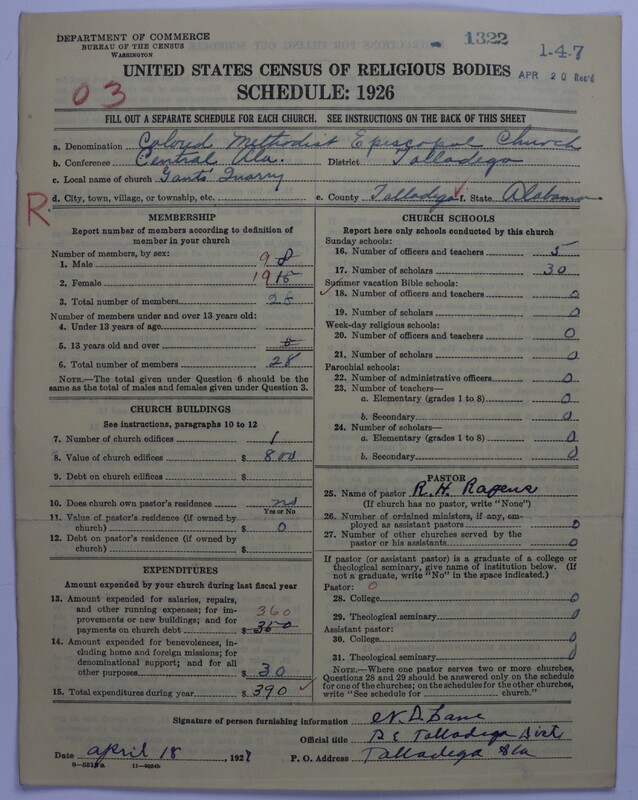 DEPARTMENT OF COMMERCE
BUREAU OF THE CENSUS
WASHINGTON
1322
1-4-7
APR 20 Rec'd
03
UNITED STATES CENSUS OF RELIGIOUS BODIES
SCHEDULE: 1926
FILL OUT A SEPARATE SCHEDULE FOR EACH CHURCH. SEE INSTRUCTIONS ON THE BACK OF THIS SHEET
a. Denomination Colored Methodist Episcopal Church
b. Conference Central Ala. District Talladega
c. Local name of church Gants' Quarry
R.
d. City, town, village, or township, etc. e. County Talladega f. State Alabama
MEMBERSHIP
Report number of members according to definition of member in your church
Number of members, by sex:
1. Male 9
2. Female 19
3. Total number of members 28
Number of members under and over 13 years old:
4. Under 13 years of age
5. 13 years old and over
6. Total number of members 28
NOTE.—The total given under Question 6 should be the same as the total of males and females given under Question 3.
CHURCH BUILDINGS
See instructions, paragraphs 10 to 12
7. Number of church edifices 1
8. Value of church edifices $ 800
9. Debt on church edifices $
10. Does church own pastor's residence no
Yes or No
11. Value of pastor's residence (if owned by church) $ 0
12. Debt on pastor's residence (if owned by church) $
EXPENDITURES
Amount expended by your church during last fiscal year
13. Amount expended for salaries, repairs, and other running expenses; for improvements or new buildings; and for payments on church debt $ 360 350
14. Amount expended for benevolences, including home and foreign missions; for denominational support; and for all other purposes $ 30
15. Total expenditures during year $ 390
CHURCH SCHOOLS
Report here only schools conducted by this church
Sunday schools:
16. Number of officers and teachers 5
17. Number of scholars 30
Summer vacation Bible schools:
18. Number of officers and teachers 0
19. Number of scholars 0
Week-day religious schools:
20. Number of officers and teachers 0
21. Number of scholars 0
Parochial schools:
22. Number of administrative officers 0
23. Number of teachers—
a. Elementary (grades 1 to 8) 0
b. Secondary 0
24. Number of scholars—
a. Elementary (grades 1 to 8) 0
b. Secondary 0
PASTOR
25. Name of pastor R. H.
(If church has no pastor, write "None")
26. Number of ordained ministers, if any, employed as assistant pastors 0
27. Number of other churches served by the pastor or his assistants 0
If pastor (or assistant pastor) is a graduate of a college or theological seminary, give name of institution below. (If not a graduate, write "No" in the space indicated.)
Pastor: 0
28. College 0
29. Theological seminary 0
Assistant pastor:
30. College 0
31. Theological seminary 0
NOTE.—Where one pastor serves two or more churches, Questions 28 and 29 should be answered only on the schedule for one of the churches; on the schedules for the other churches, write "See schedule for church."
Signature of person furnishing information N. D. Lane
Official title P E Talladega Dist
Date april 18, 1927 P. O. Address Talladega Ala
11-9024b